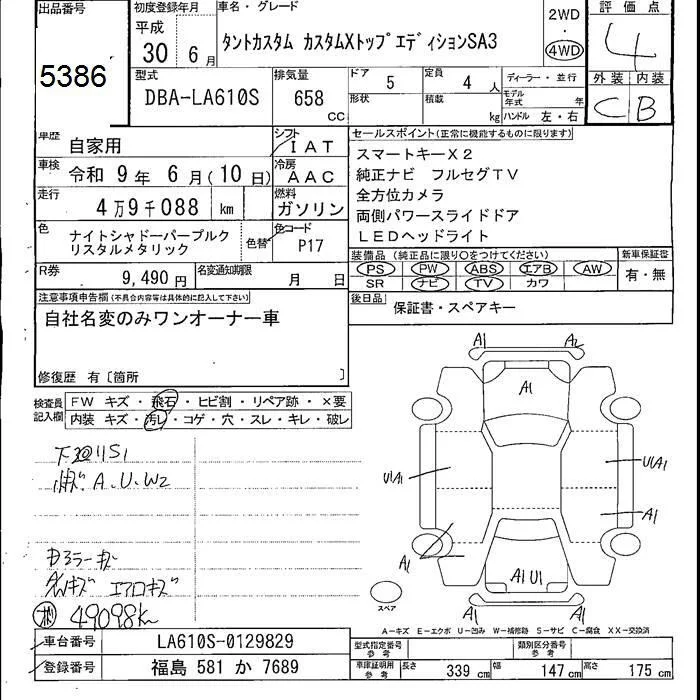 出品番号
5386
初度登録年月
平成
30 6月
車名・グレード
タントカスタム カスタムXトップエディションSA3
2WD
・
4WD
評価点
4
外装 内装
C B
型式
DBA-LA610S
排気量
658
CC
ドア
5
形状
定員
4
人
積載
kg
ディーラー・並行
モデル年式
年
ハンドル 左・右
車歴
自家用
シフト
IAT
車検
令和 9年 6月(10日)
冷房
AAC
走行
4万9千088 km
燃料
ガソリン
色
ナイトシャドーパープルク
リスタルメタリック
色替
色コード
P17
R券
9,490円
名変通知期限
月 日
セールスポイント(正常に機能するものに限ります)
スマートキーX2
純正ナビ フルセグTV
全方位カメラ
両側パワースライドドア
LEDヘッドライト
装備品(純正品に限り○をつけてください)
PS PW ABS エアB AW
SR ナビ TV カワ
新車保証書
有・無
後日品
保証書・スペアキー
注意事項申告欄(不具合内容等は具体的に記入して下さい)
自社名変のみワンオーナー車
修復歴 有〔箇所 〕
検査員記入欄
FW キズ・飛石・ヒビ割・リペア跡・×要
内装 キズ・汚レ・コゲ・穴・スレ・キレ・破レ
A、U、W2
エアロキズ
49098km
A1 A2
A1
U1A1
U1A1
A1
A1
A1U1
スペア
A1 A1
A-キズ E-エクボ U-凹み W-補修跡 S-サビ C-腐食 XX-交換済
車台番号
LA610S-0129829
登録番号
福島 581 か 7689
型式指定番号
参考
類別区分番号
参考
車庫証明用
参考
長さ
339 cm
幅
147 cm
高さ
175 cm